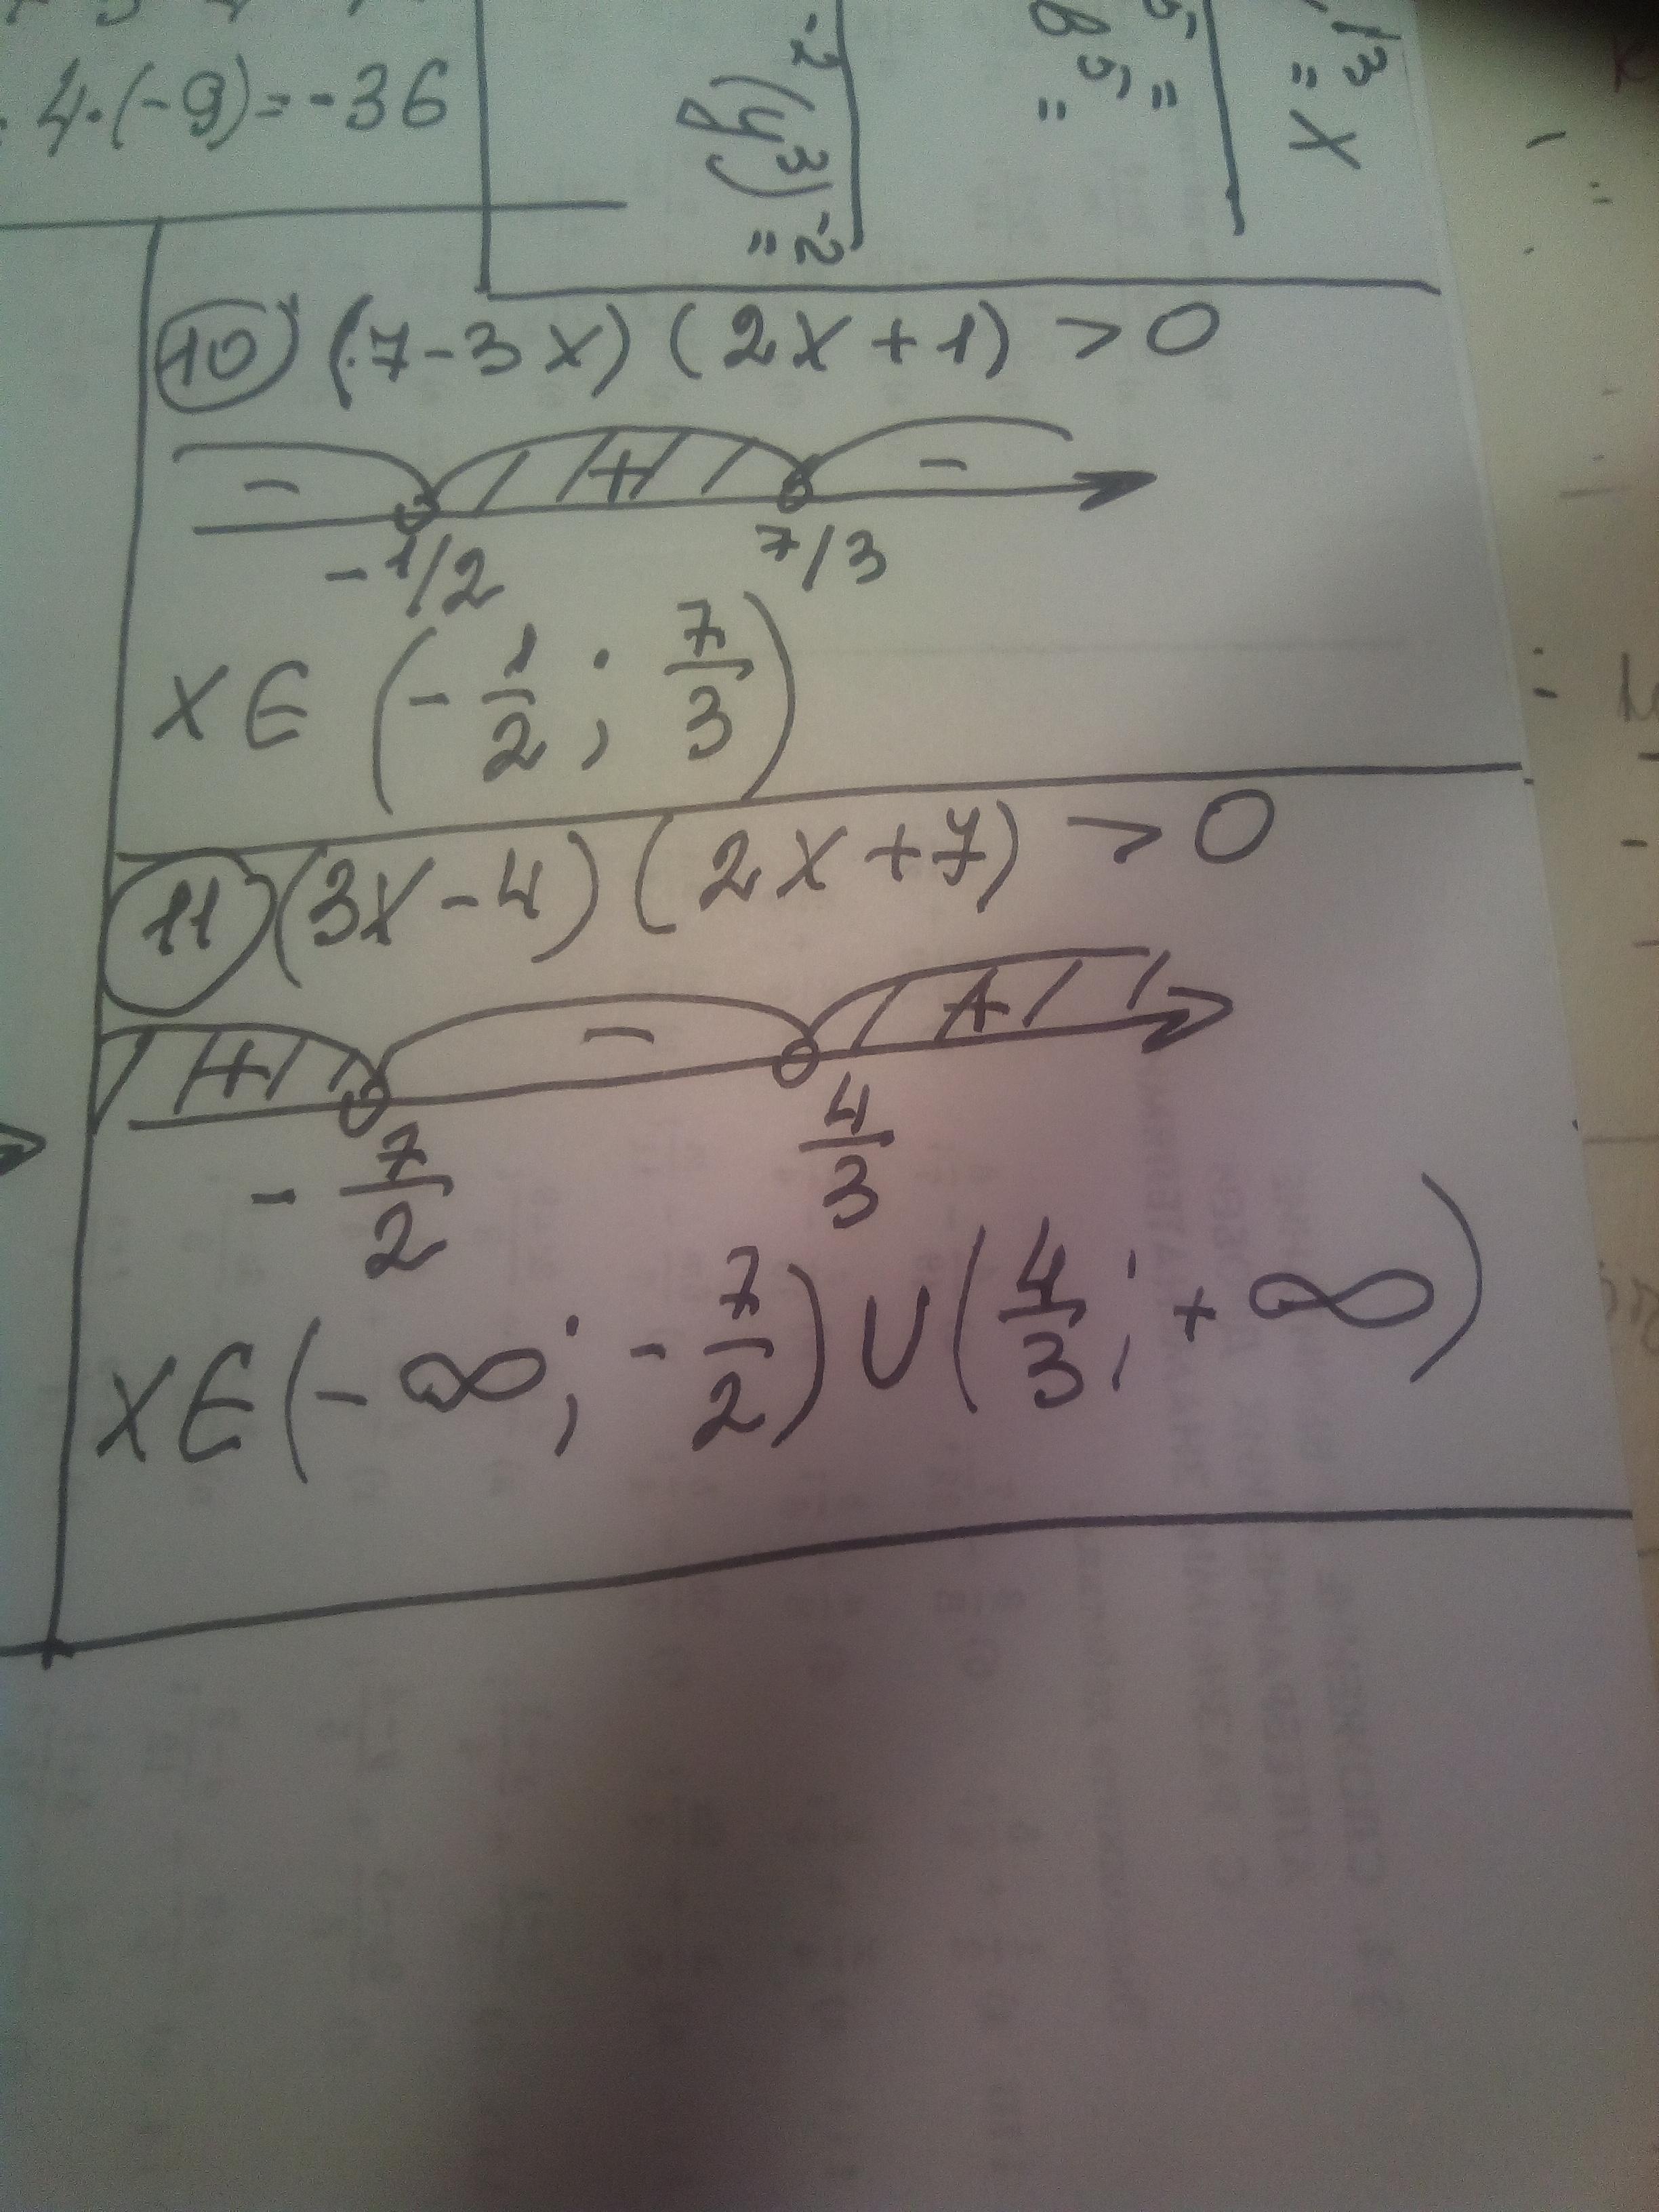 4·(-9)=-36
-2
(y³)⁻²=
5 =
8⁵ =
13 = X
10) (7-3x)(2x+1) > 0
- + -
-1/2 7/3
x∈(-1/2; 7/3)
11 (3x-4)(2x+7) > 0
+ - +
-7/2 4/3
x∈(-∞; -7/2)∪(4/3; +∞)